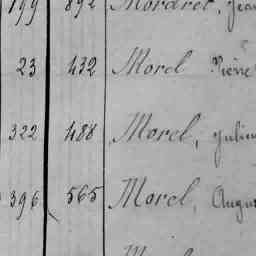 199 892 Mordret, Jean
23 432 Morel Pierre
322 488 Morel, Julien
396 565 Morel, Augus